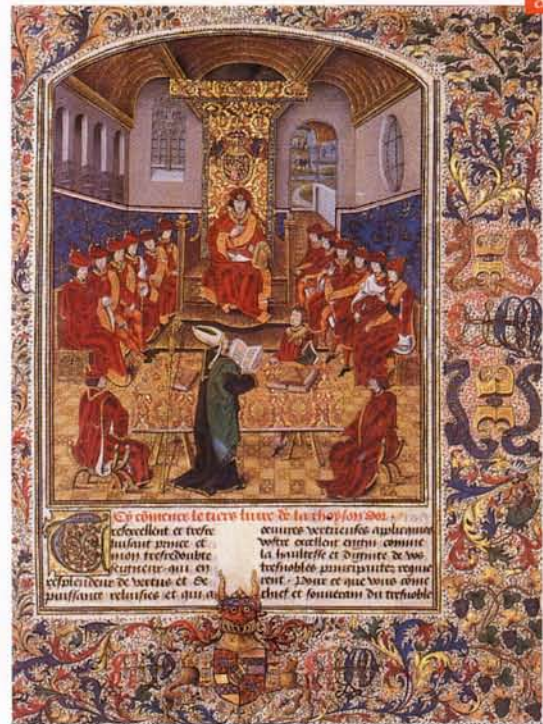 Cy cōmence le tiers livre de la thoyson dor
Trefexcellent et trefre
luisant prince et
mon trefredoubte
seigneur qui en
resplendeur de vertus et de
puissance reluisies et qui a
oeuvres vertueuses appliquies
vostre excellent engin comme
la haultesse et dignite de vos
tresnobles principautez requie
rent. Pour ce que vous come
chief et souverain du tresnoble